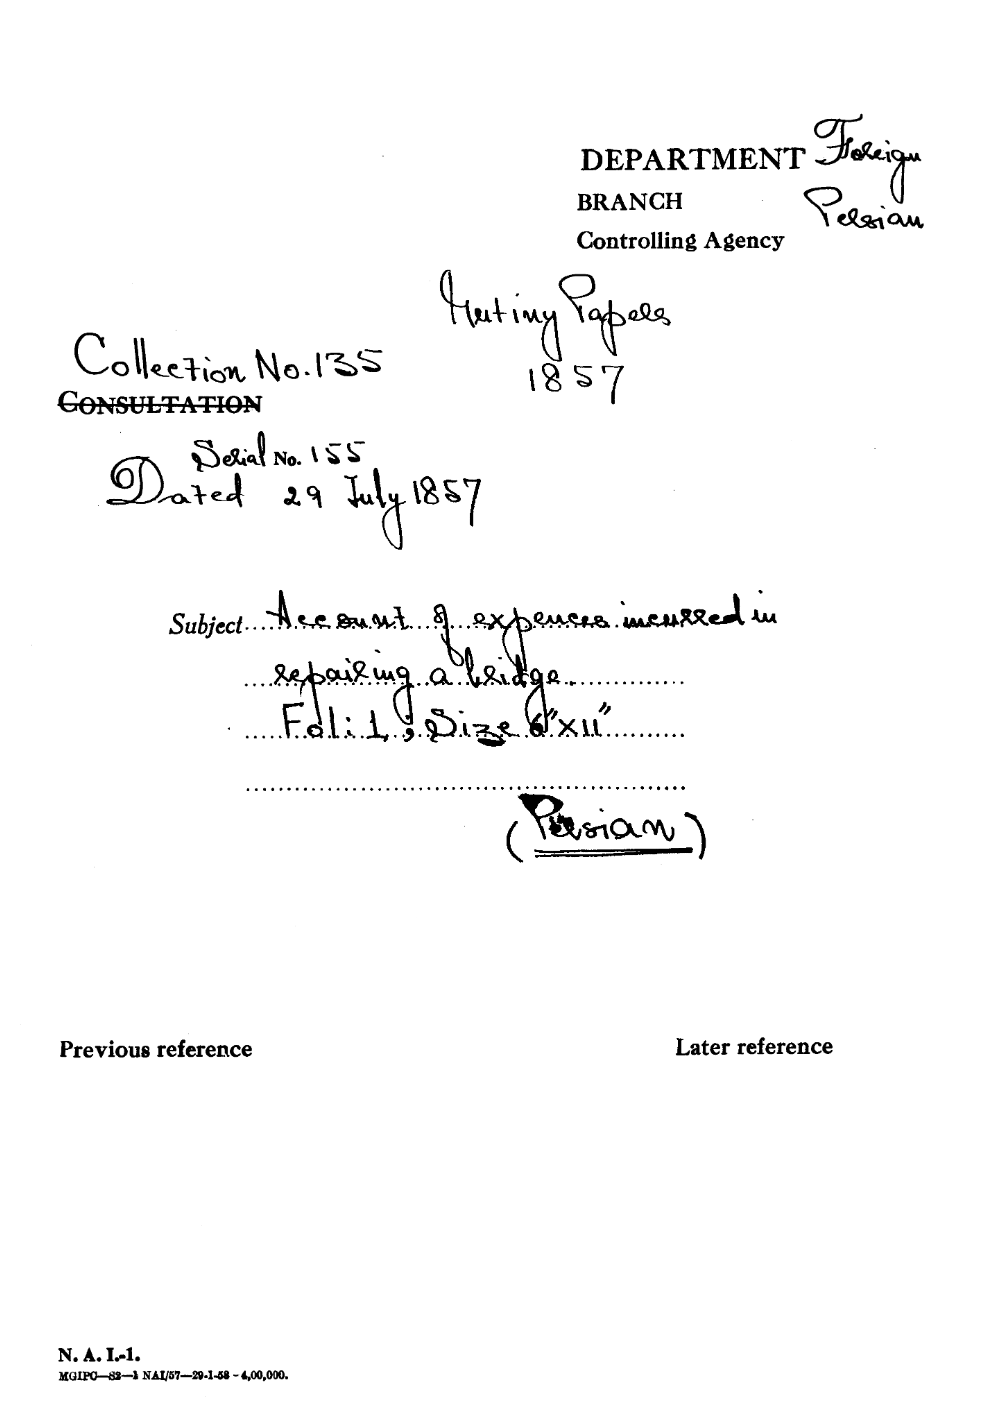 DEPARTMENT Foreign
BRANCH Persian
Controlling Agency
Mutiny Papers
1857
Collection No. 135
CONSULTATION
Serial No. 155
Dated 29 July 1857
Subject Account of expences incurred in
repairing a bridge.
Fol: 1, Size 6"x11"
(Persian)
Previous reference
Later reference
N. A. I.-1.
MGIPC—S2—1 NAI/57—29-1-58 - 4,00,000.